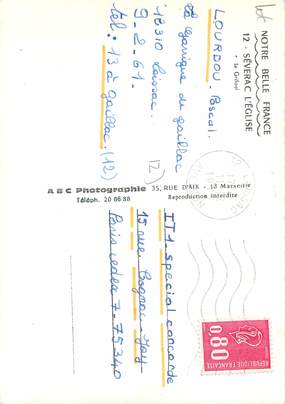 lot
NOTRE BELLE FRANCE
12 - SÉVERAC L'ÉGLISE
LOURDOU Pascal.
la Garrigue de gaillac
12310 Laissac.
9-2-61. (12)
tel: 13 à gaillac (12)
ABC Photographie 35, RUE D'AIX - 13 Marseille
Téléph. 20 86 88 Reproduction interdite
IT1 special concorde
15 rue Cognacq-Jay
Paris cedex 7-75340
0,80
REPUBLIQUE FRANÇAISE